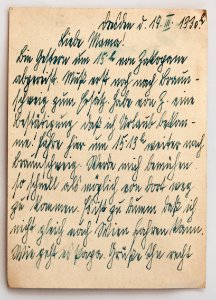 Dresden d. 19.III. 1940.
Liebe Mama.
Bin Gestern um 15h von Zakopane
abgereist. Muß erst noch nach Braun-
schweig zum Ersatz. Habe von H. eine
bestätigung, daß ich Urlaub bekom-
me. Fahre hier um 15.13h weiter nach
braunschweig. Werde mich bemühen
so schnell als möglich von dort weg
zu kommen. Es ist zu dumm daß ich
nicht gleich nach Wien fahren kann.
Wie geht es Papa. Grüße Ihn recht